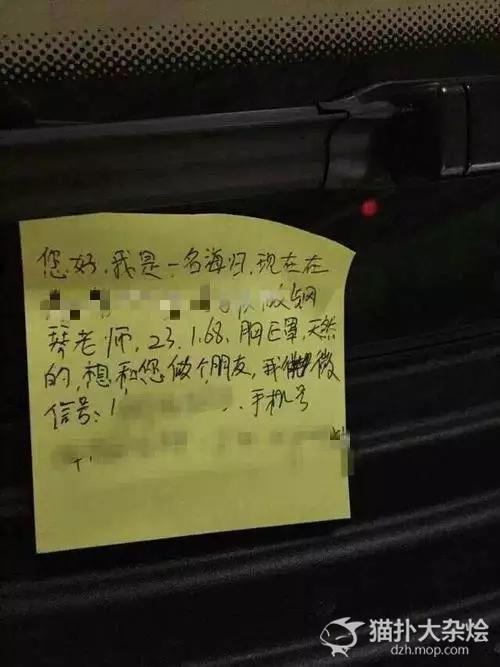 您好,我是一名海归,现在在
做钢
琴老师,23,1.68,胸E罩,天然
的,想和您做个朋友,我
微
信号:1 手机号
猫扑大杂烩
dzh.mop.com